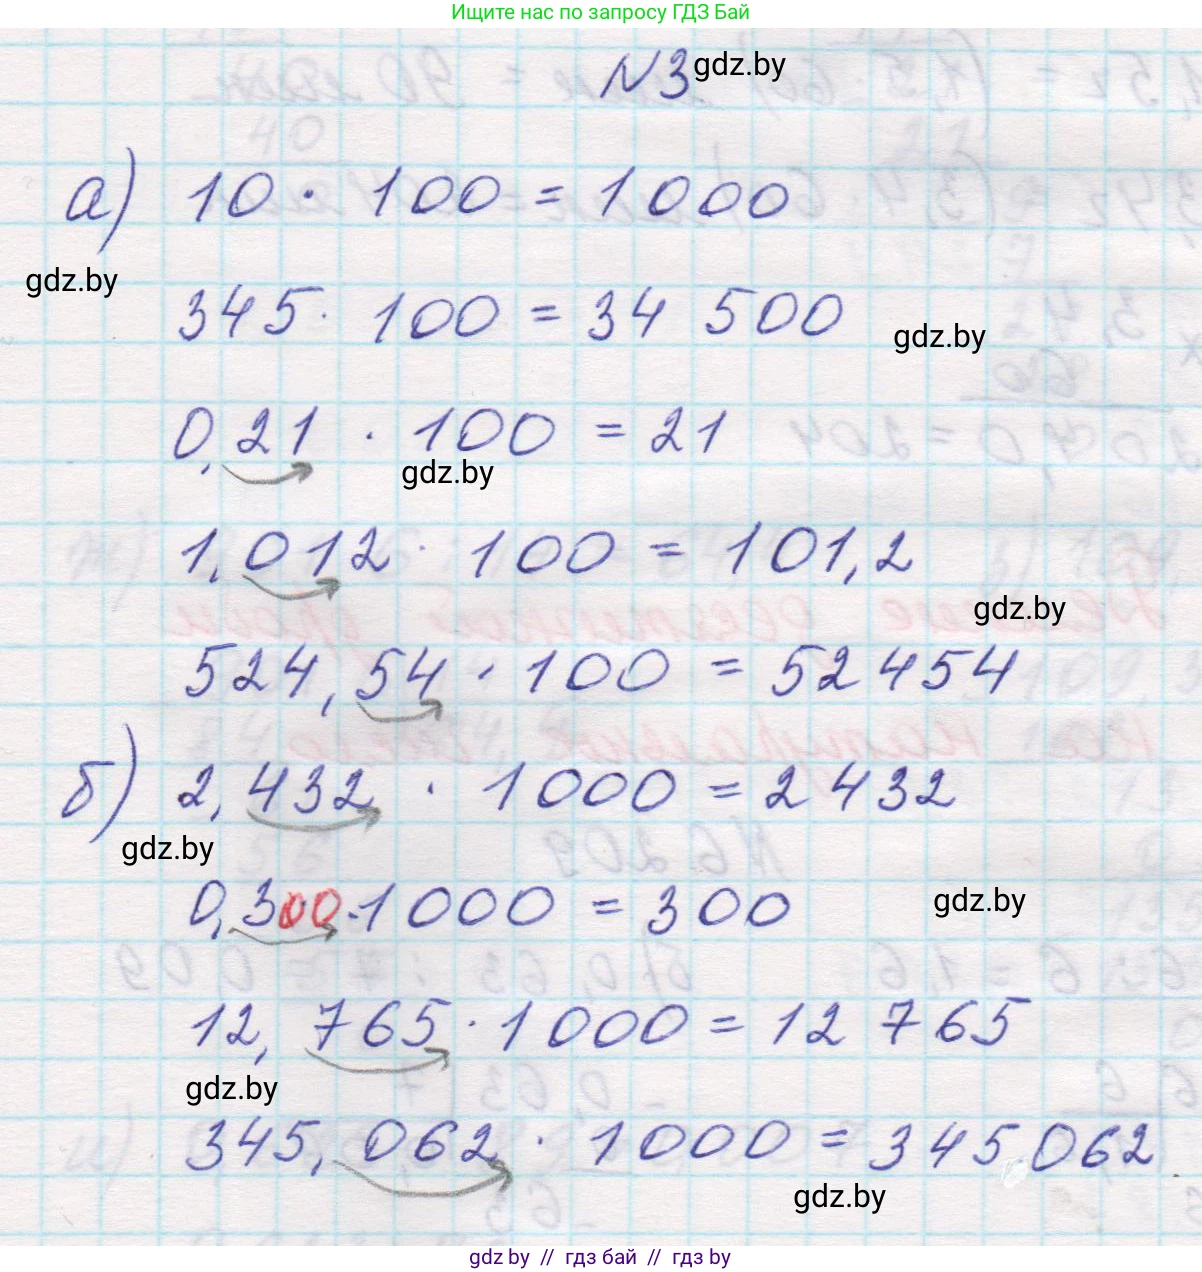 Ищите нас по запросу ГДЗ Бай
N3 gdz.by
а) 10 · 100 = 1000
gdz.by
345 · 100 = 34 500
gdz.by
0,21 · 100 = 21
gdz.by
1,012 · 100 = 101,2
gdz.by
524,54 · 100 = 52454
б) 2,432 · 1000 = 2432
gdz.by
0,300 · 1000 = 300
gdz.by
12,765 · 1000 = 12 765
gdz.by
345,062 · 1000 = 345 062
gdz.by
gdz by // гдз бай // гдз by